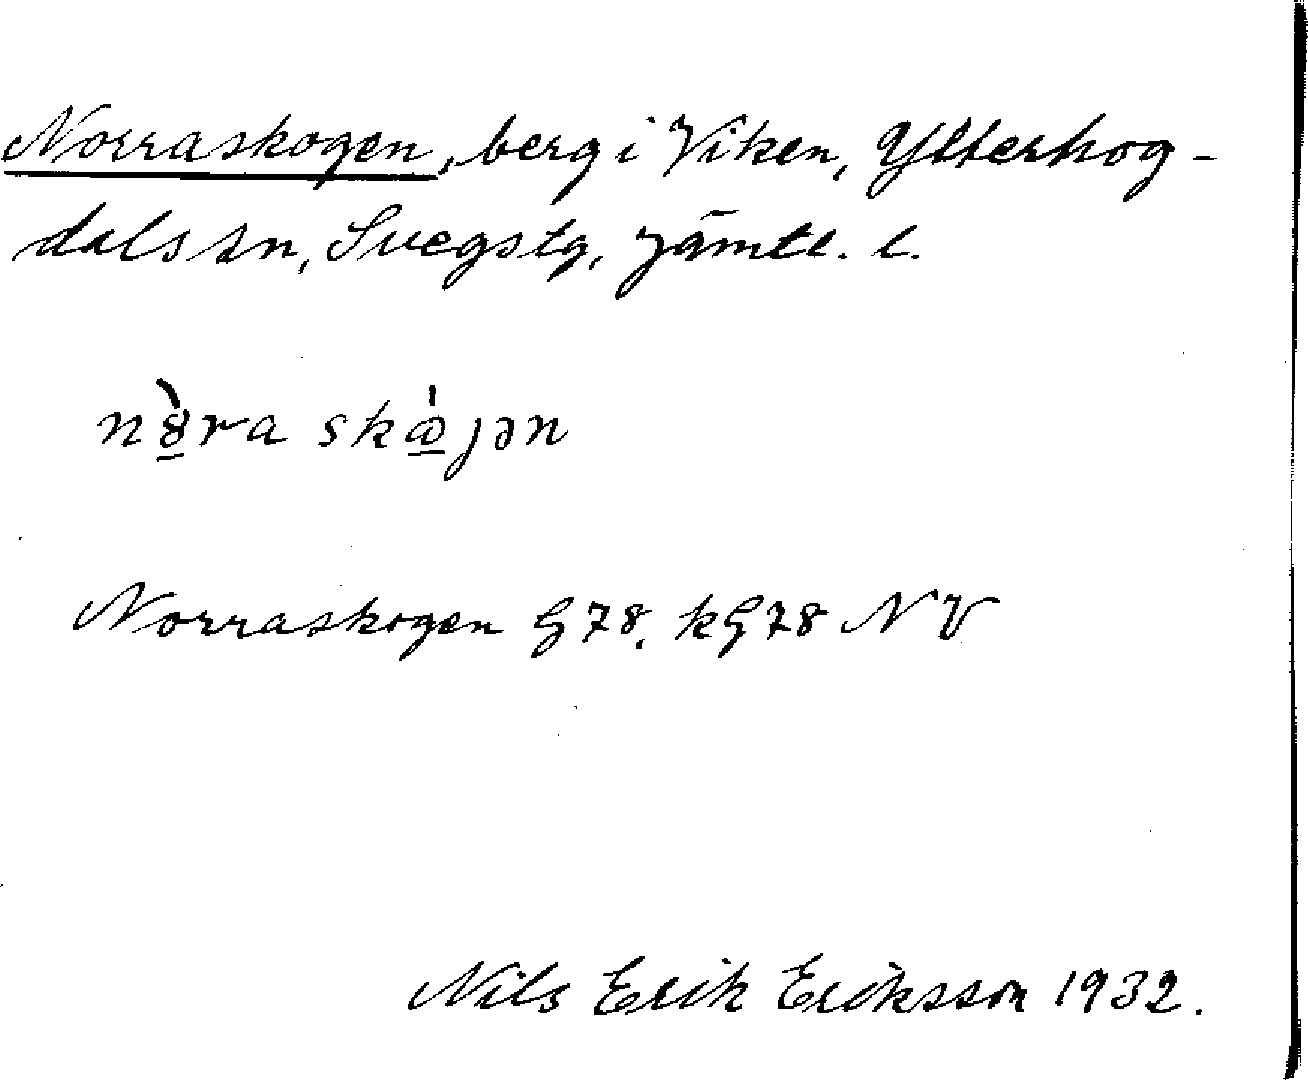 Norraskogen, berg i Viken, Ytterhog-
dals sn, Svegs tg, Jämtl. l.
nò̱ra skώ̱jən
Norraskogen G 78. kG 78 NV
Nils Erik Eriksson 1932.